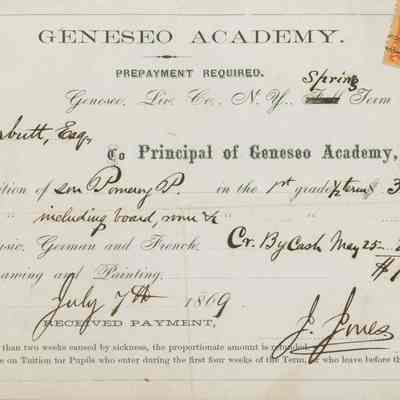 GENESEO ACADEMY.
PREPAYMENT REQUIRED.
Spring
Geneseo, Liv. Co., N. Y., Fall Term
butt, Esq,
To Principal of Geneseo Academy,
ition of son Pomeroy P. in the 1st grade ½ term $ 3
" including board, room &c "
usic, German and French, Cr. By Cash May 25
awing and Painting.
July 7th 1869
RECEIVED PAYMENT,
J. Jones
than two weeks caused by sickness, the proportionate amount is refunded
e on Tuition for Pupils who enter during the first four weeks of the Term, or who leave before th